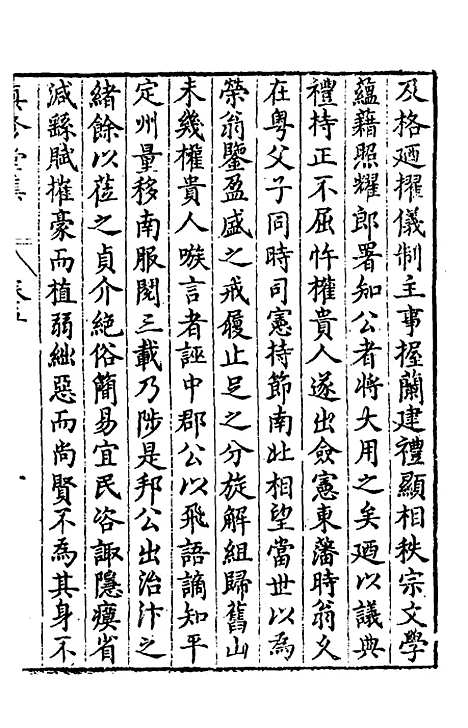 及格廼擢儀制主事握蘭建禮顯相秩宗文學
蘊藉照耀郎署知公者將大用之矣廼以議典
禮持正不屈忤權貴人遂出僉憲東藩時翁久
在粵父子同時司憲持節南北相望當世以為
榮翁鑒盈盛之戒履止足之分旋解組歸舊山
未幾權貴人嗾言者誣中郡公以飛語謫知平
定州量移南服閱三載乃陟是邦公出治汴之
緒餘以莅之貞介絕俗簡易宜民咨諏隱瘼省
減繇賦摧豪而植弱絀惡而尚賢不為其身不
卷五